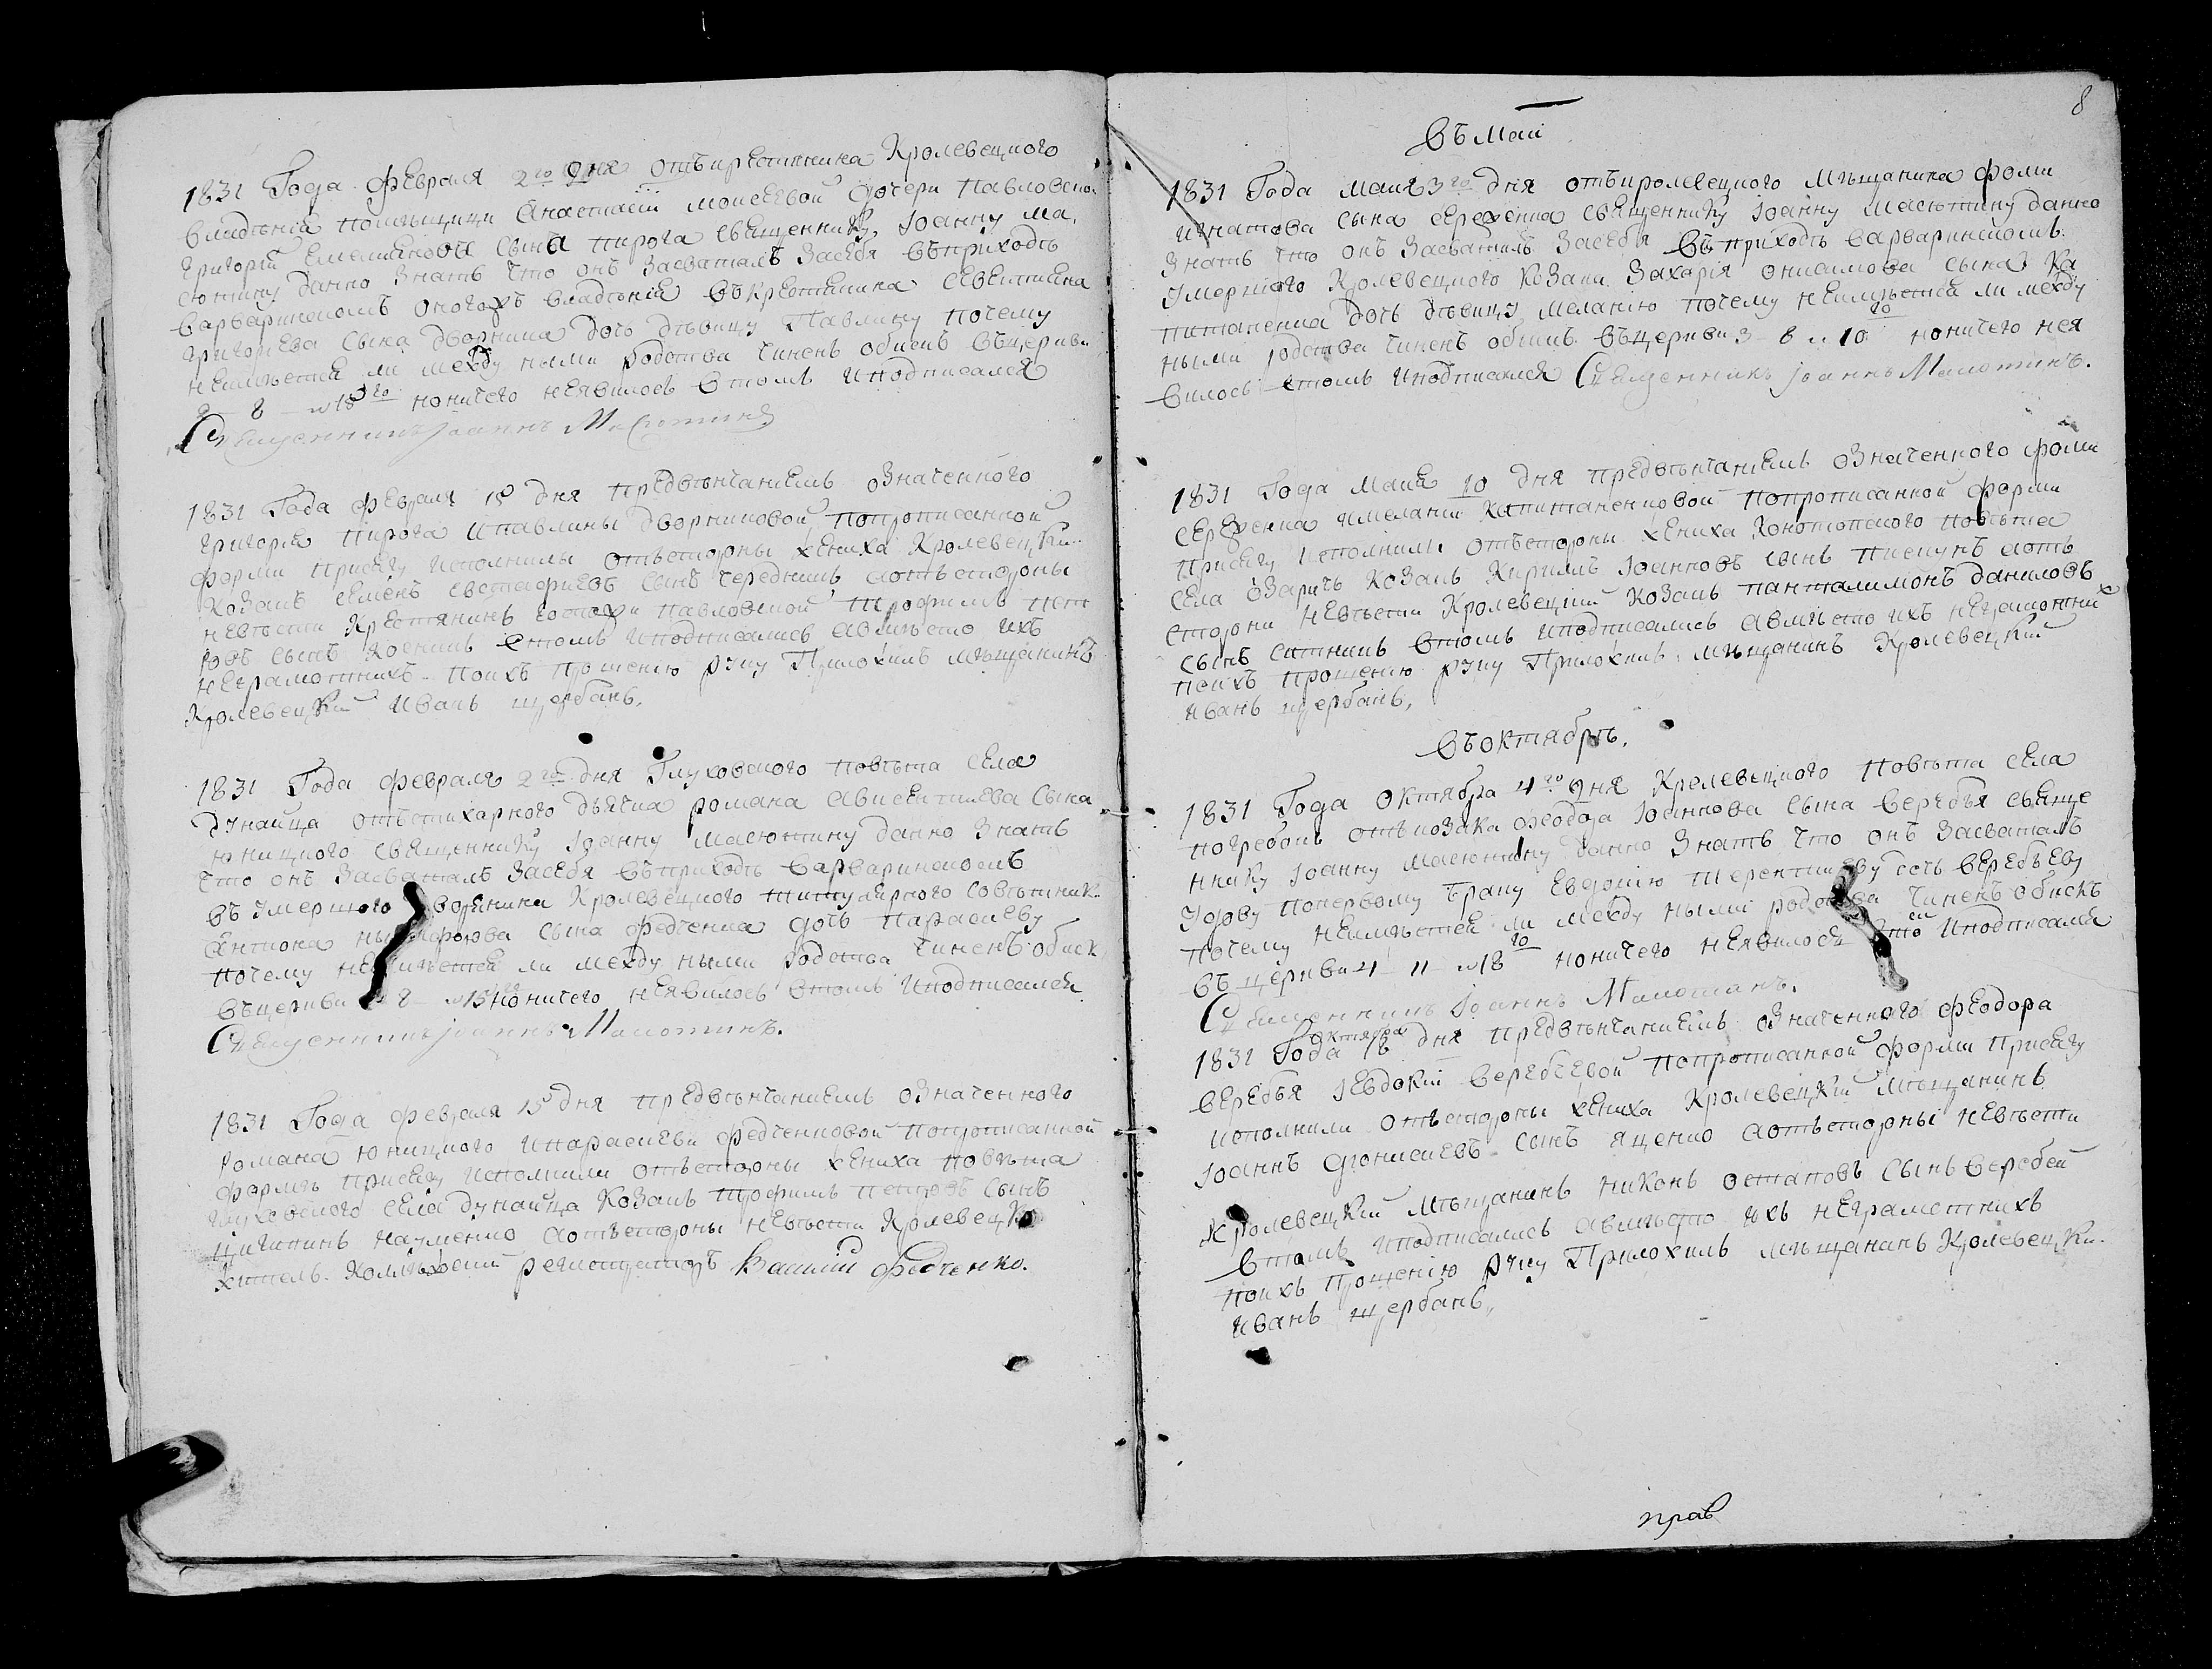 1831 Года февраля 2го дня отъ крестянина Кролевецкого
владѣнія помѣщици Анастасіи Моисеевой дочери Павловско
Григорій Емелянова сына Пирога священнику Іоанну Ма
сютину данно знать что онъ засваталъ засебя въприходѣ
Варваринскомъ оного владѣнія крестянина Севастияна
Григориева сына Дворника дочь дѣвицу Павлину почему
неимѣется ли между ными родства чиненъ обискъ въцеркви
2 8 и 15го но ничего неявилось втомъ и подписался
Священникъ Іоаннъ Масютинъ
1831 Года февраля 15 дня предвѣнчаніемъ означенного
Григорія Пирога и Павлины Дворниковой попрописанной
форми присягу исполнили отъстороны жениха Кролевецкій
Козакъ Семенъ Евстафиевъ сынъ Череднικъ аотъстороны
невѣсти крестянинъ госпожи Павловской Трофимъ Пет
ровъ сынъ втомъ и подписались авмѣсто ихъ
неграмотнихъ поихъ прошению руку приложилъ мѣщанинъ
Кролевецкий Иванъ Щербань.
1831 Года февраля 2го дня Глуховского повѣта села
Дунайца отъстихарного дъячка Романа Авксентиева сына
Юницкого священнику Іоанну Масютину данно знать
что онъ засваталъ засебя въприходѣ Варваринскомъ
въ умершого дворянина Кролевецкого титулярного совѣтника
Антона Никифорова сына Федченка дочь Парасκеву
почему неимѣется ли между ными родства чиненъ обиск
въцеркви 2 8 и 15го но ничего неявилось втомъ и подписался
Священникъ Іоаннъ Масютинъ.
1831 Года февраля 15 дня предвѣнчаниемъ означенного
Романа Юницкого и Парасκеви Федченковой попрописанной
формѣ присягу исполнили отъстороны жениха повѣта
Глуховского села Дунайца Козакъ Трофимъ Петровъ сынъ
аотъстороны невѣсти Кролевецкій
житель Колѣжский регистраторъ Василий Федченко.
8
въ Маи
1831 Года Маия 3го дня отъ кролевецкого мѣщанина Фоми
Игнатова сына священнику Іоанну Масютину данно
знать что онъ засваталъ засебя въприходѣ Варваринскомъ
умершого Кролевецкого Козака Захария Онисимова сына Ка
питаненка дочь дѣвицу Меланію почему неимѣется ли между
ными родства чиненъ обискъ въцеркви 3 8 и 10го но ничего нея
вилось втомъ и подписался Священникъ Іоаннъ Масютинъ.
1831 Года Маия 10 дня предвѣнчаниемъ означенного Фоми
и Меланіи Капитаненковой попрописанной форми
присягу исполнили отъстороны жениха Конотопского повѣта
села Озаричъ Козакъ Кирилъ Іоанновъ сынъ Пискунъ аотъ
стороны невѣсти Кролевецкій Козакъ Пантелимонъ Даниловъ
сынъ Ситникъ втомъ и подписались авмѣсто ихъ неграмотних
поихъ прошению руку приложилъ мѣщанинъ Кролевецкий
Иванъ Щербань.
Въ октябрѣ.
1831 Года Октября 4го дня Кролевецкого повѣта села
Погребокъ отъ козака Феодора Іоаннова сына Веребъя свяще
ннику Іоанну Масютину данно знать что онъ засваталъ
удову попервому браку Евдокію Терентиеву дочь Веребъеву
почему неимѣется ли между ными родства чиненъ обискъ
въ церкви 4 11 и 18го но ничего неявилось втом и подписался
Священникъ Іоаннъ Масютинъ.
1831 Года октября 18 дня предвѣнчаниемъ означенного Феодора
Веребъя Іевдокіи Веребъевой попрописанной форми присягу
исполнили отъстороны жениха Кролевецкій мѣщанинъ
Іоаннъ Дионисиевъ сынъ Яценко аотъстороны невѣсти
Кролевецкій мѣщанинъ Никонъ Остаповъ сынъ Веребей
втомъ и подписались авмѣсто ихъ неграмотнихъ
поихъ прошению руку приложилъ мѣщанинъ Кролевецкий
Иванъ Щербань.
прав